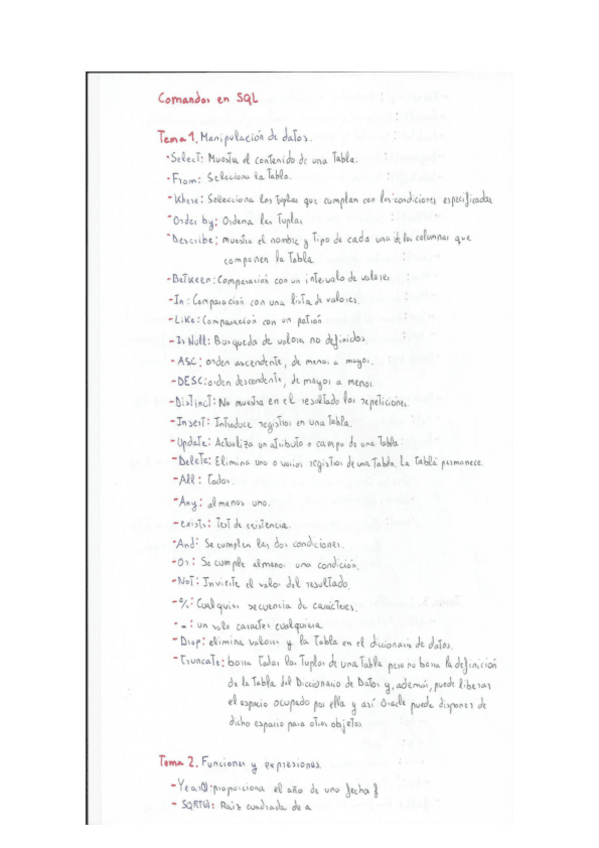 Comandos en SQL
Tema 1. Manipulación de datos.
- Select: Muestra el contenido de una Tabla.
- From: Selecciona la Tabla.
- Where: Selecciona las Tuplas que cumplan con las condiciones especificadas
- Order by: Ordena las Tuplas
- Describe: muestra el nombre y Tipo de cada una de las columnas que
componen la Tabla.
- Between: Comparación con un intervalo de valores
- In: Comparación con una lista de valores.
- Like: Comparación con un patrón
- Is Null: Búsqueda de valores no definidos.
- ASC: orden ascendente, de menor a mayor.
- DESC: orden descendente, de mayor a menor.
- Distinct: No muestra en el resultado las repeticiones.
- Insert: Introduce registros en una Tabla.
- Update: Actualiza un atributo o campo de una Tabla
- Delete: Elimina uno o varios registros de una Tabla. La Tabla permanece.
- All: Todos.
- Any: al menos uno.
- exists: Test de existencia.
- And: Se cumplen las dos condiciones.
- Or: Se cumple al menos una condición.
- Not: Invierte el valor del resultado.
- %: Cualquier secuencia de carácteres.
- _: un solo carácter cualquiera
- Drop: elimina valores y la Tabla en el diccionario de datos.
- Truncate: borra todas las Tuplas de una Tabla pero no borra la definición
de la Tabla del Diccionario de Datos y, además, puede liberar
el espacio ocupado por ella y así Oracle puede disponer de
dicho espacio para otros objetos
Tema 2. Funciones y expresiones.
- Year(f): proporciona el año de una fecha f
- SQRT(a): Raiz cuadrada de a